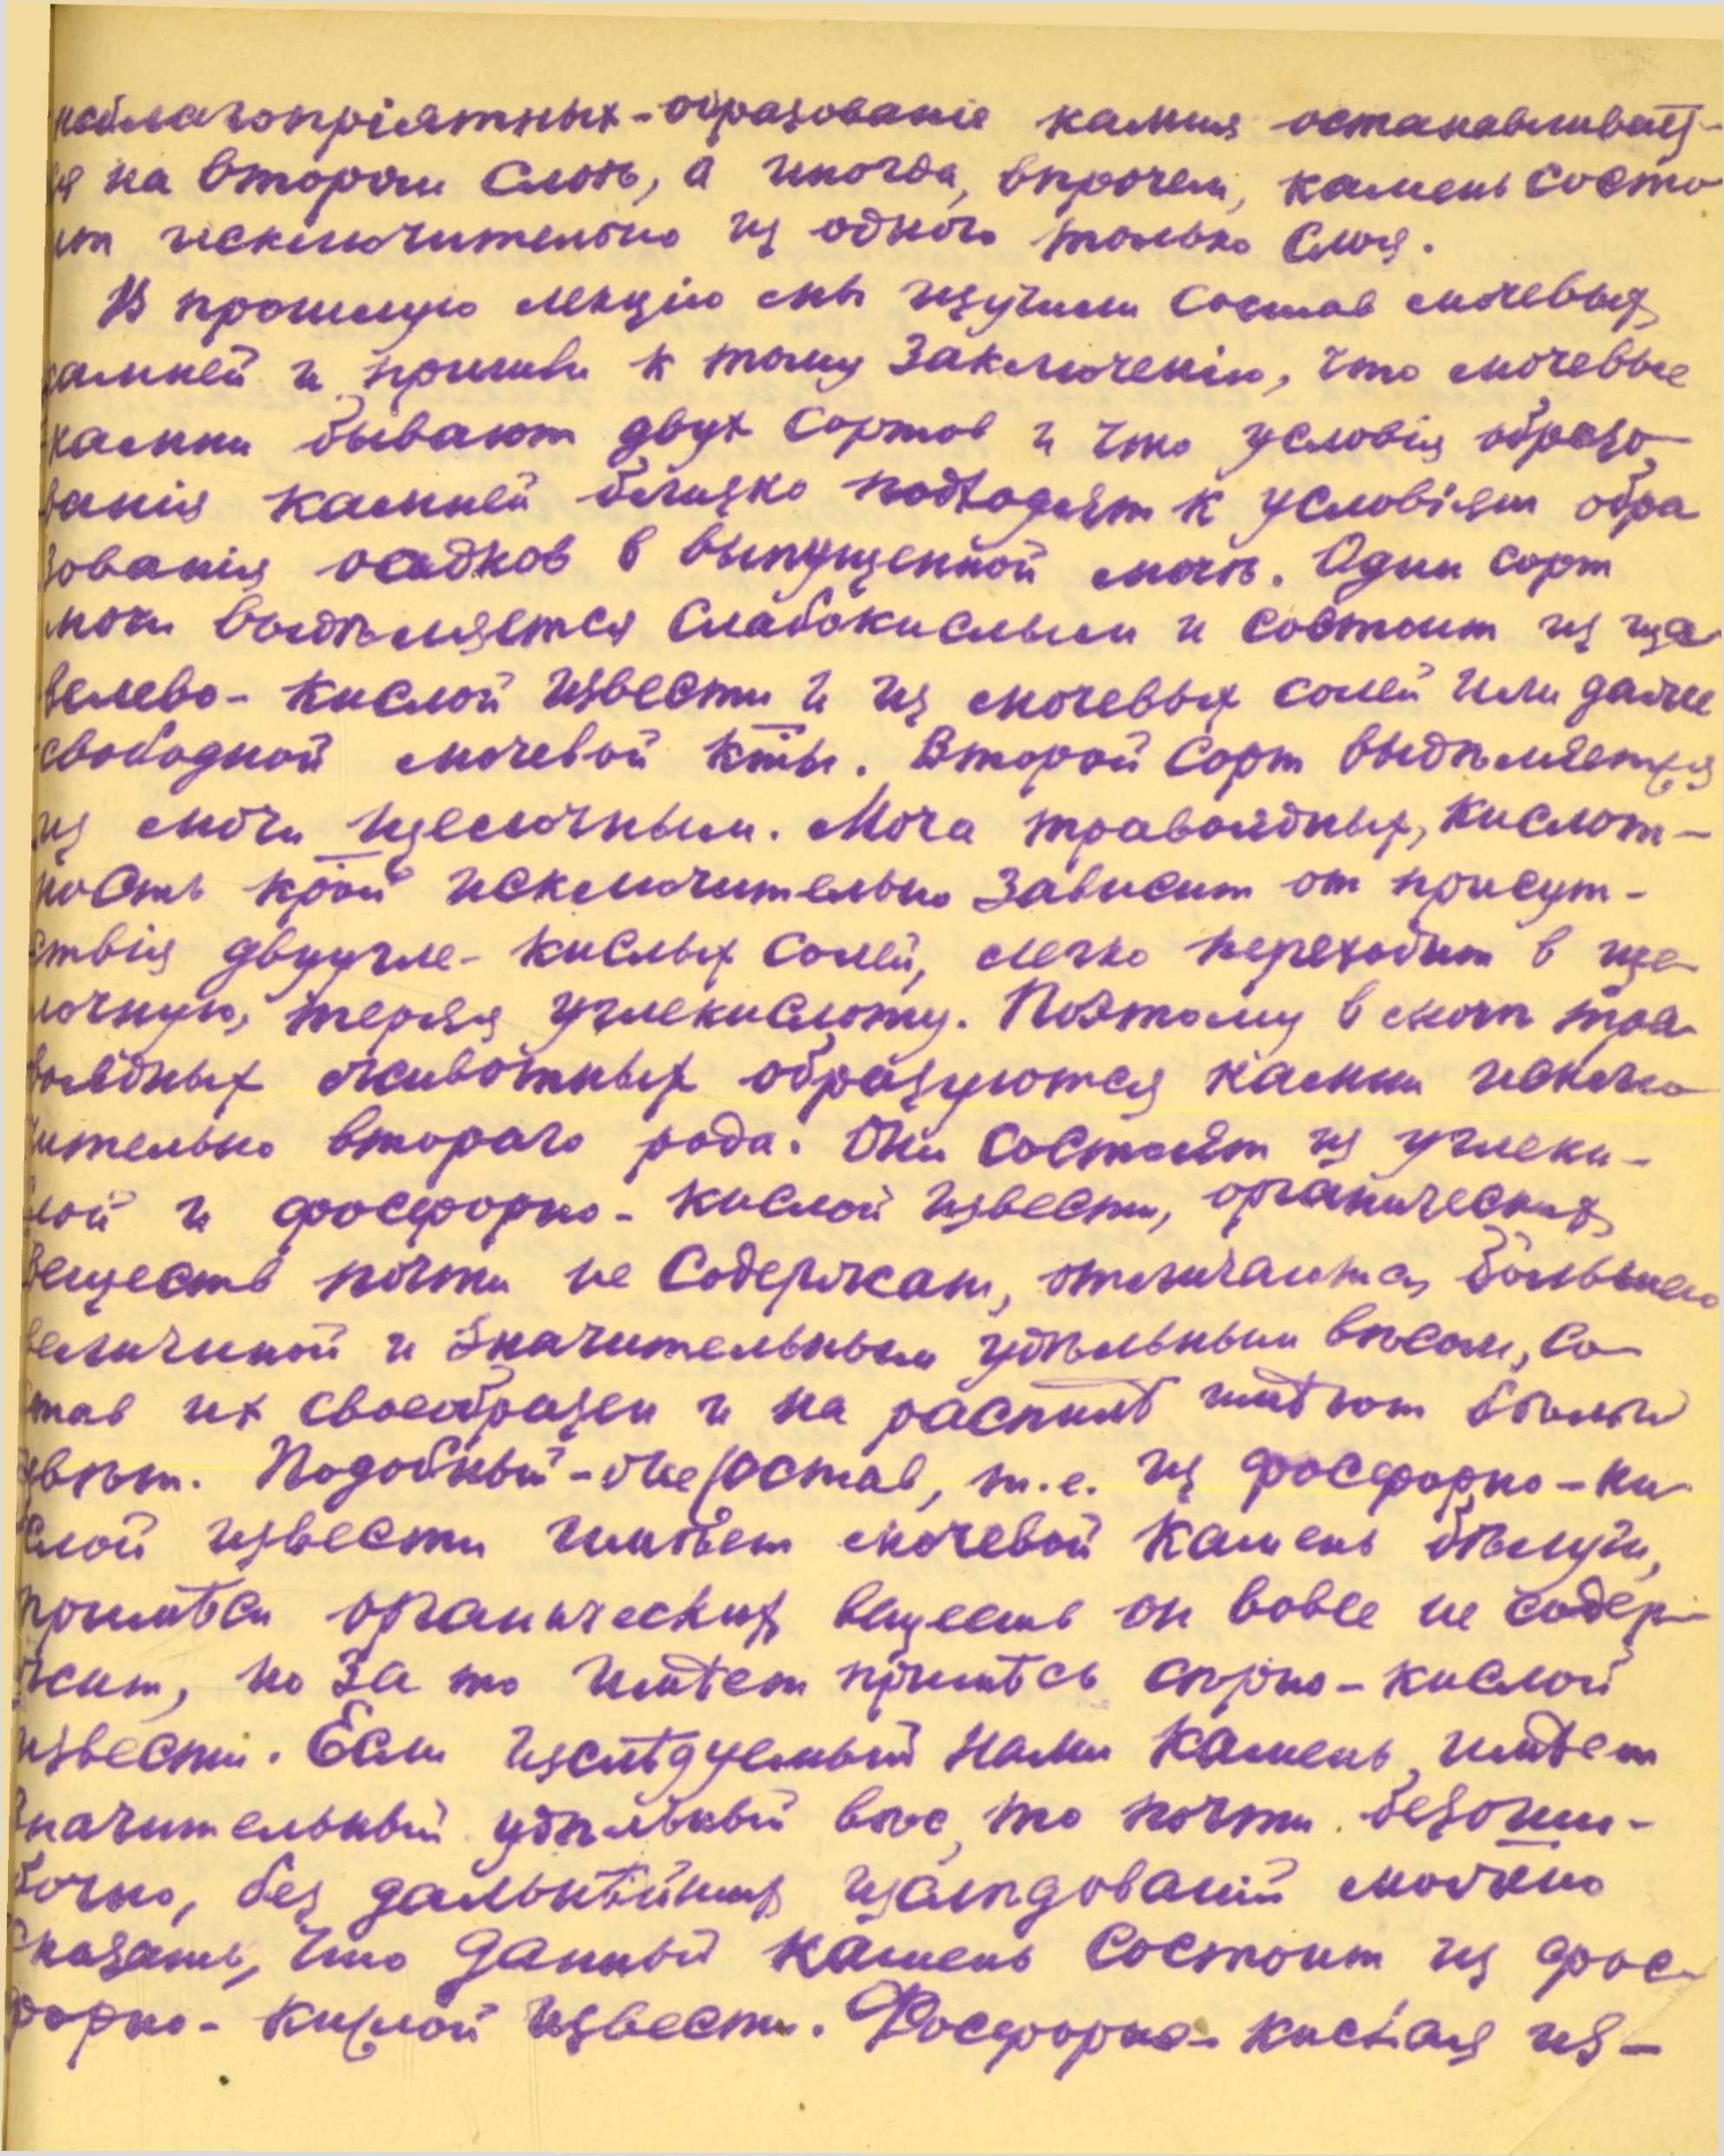 неблагопріятных-образованіе камня останавливает-
ся на втором слоѣ, а иногда, впрочем, камень состо
ит исключительно из одного только слоя.
В прошлую лекцію мы изучили состав мочевых
камней и пришли к тому заключенію, что мочевые
камни бывают двух сортов и что условія образо-
ванія камней близко подходят к условіям обра
зованія осадков в выпущенной мочѣ. Один сорт
мочи выдѣляется слабокислым и состоит из ща
велево-кислой извести и из мочевых солей или даже
свободной мочевой к-ты. Второй сорт выдѣляется
из мочи щелочным. Моча травоядных, кислот-
ность крой исключительно зависит от присут-
ствія двуугле-кислых солей, легко переходит в ще-
лочную, теряя углекислоту. Поэтому в мочѣ тра-
воядных животных образуются камни исклю-
чительно втораго рода. Они состоят из углеки-
слой и фосфорно-кислой извести, органических
веществ почти не содержат, отличаются большею
величиной и значительным удѣльным вѣсом, со-
став их своеобразен и на распилѣ имѣют бѣлый
цвѣт. Подобный-же состав, т.е. из фосфорно-ки-
слой извести имѣет мочевой камень бѣлуги,
примѣси органических веществ он вовсе не содер-
жит, но за то имѣет примѣсь сѣрно-кислой
извести. Если изслѣдуемый нами камень имѣет
значительный удѣльный вѣс, то почти безоши-
бочно, без дальнѣйших изслѣдованій можно
сказать, что данный камень состоит из фос-
форно-кислой извести. Фосфорно-кислая из-